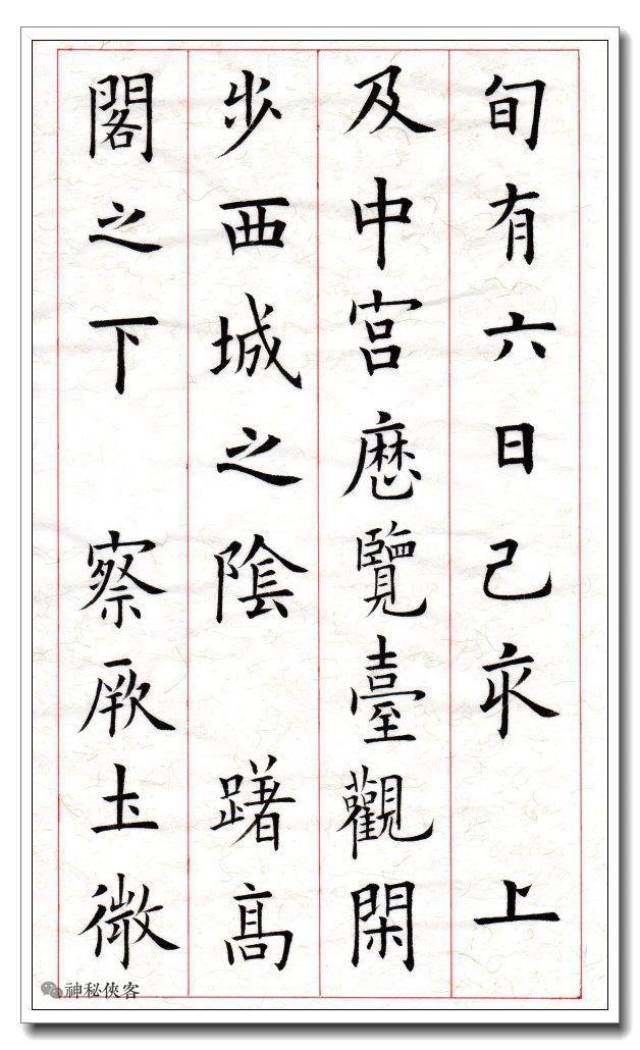 旬有六日己亥　上
及中宫歷覽臺觀閑
步西城之陰　躇高
閣之下　察厥土微
神秘俠客